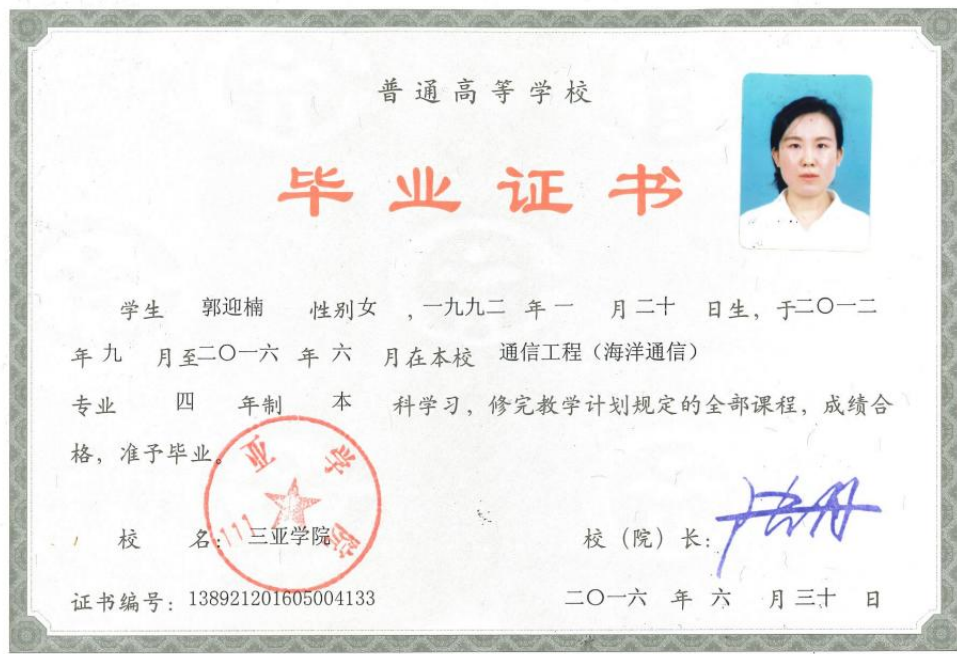 普通高等学校
毕业证书
学生 郭迎楠 性别女 ,一九九二 年一 月二十 日生,于二〇一二
年九 月至二〇一六 年 六 月在本校 通信工程(海洋通信)
专业 四 年制 本 科学习,修完教学计划规定的全部课程,成绩合
格,准予毕业。
三亚学院
校 名:三亚学院
校(院)长:
证书编号:138921201605004133
二〇一六 年 六 月三十 日